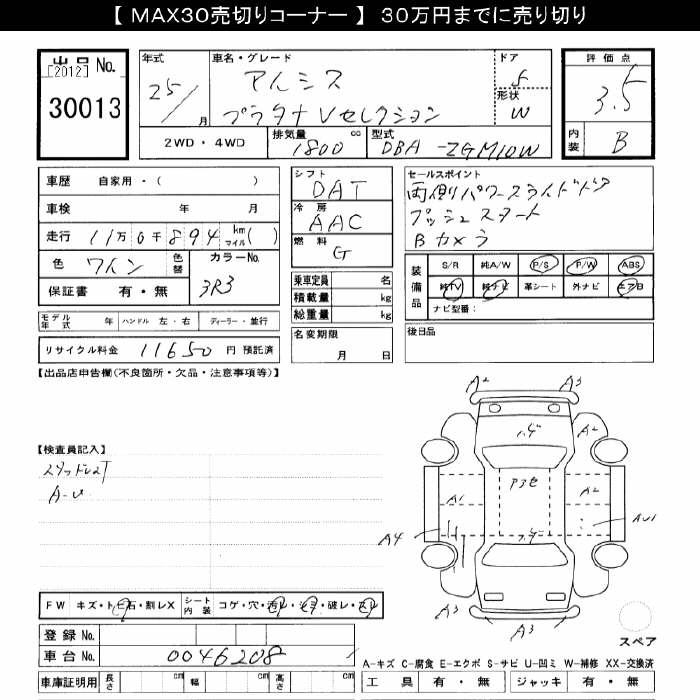 【 MAX30売切りコーナー 】 30万円までに売り切り
出品 No.
[2012]
30013
年式 25/ 月
車名・グレード アルシス
プラタナVセレクション
ドア 5
形状 W
評価点 3.5
内装 B
2WD・4WD
排気量 1800 cc
型式 DBA-ZGM10W
車歴 自家用・( )
車検 年 月
走行 11万0千894 km マイル( )
色 ワイン 色替
カラーNo. 3R3
保証書 有・無
シフト DAT
冷房 AAC
燃料 G
乗車定員 名
積載量 kg
総重量 kg
名変期限 月 日
セールスポイント
両側パワースライドドア
プッシュスタート
Bカメラ
装備品
S/R 純A/W P/S P/W ABS
純TV 純ナビ 革シート 外ナビ エアB
ナビ型番:
後日品
モデル年式 年 ハンドル 左・右 ディーラー・並行
リサイクル料金 11650 円 預託済
【出品店申告欄(不良箇所・欠品・注意事項等)】
【検査員記入】
スタッドレスT
A-U
A2 A3
A2
A1 A2
A4 AU1
A3 A3
A3
FW キズ・トビ石・割レX
シート内装 コゲ・穴・汚レ・シミ・破レ・スレ
登録 No.
車台 No. 0046208
車庫証明用 長さ cm 幅 cm 高さ cm
スペア
A-キズ C-腐食 E-エクボ S-サビ U-凹ミ W-補修 XX-交換済
工具 有・無 ジャッキ 有・無